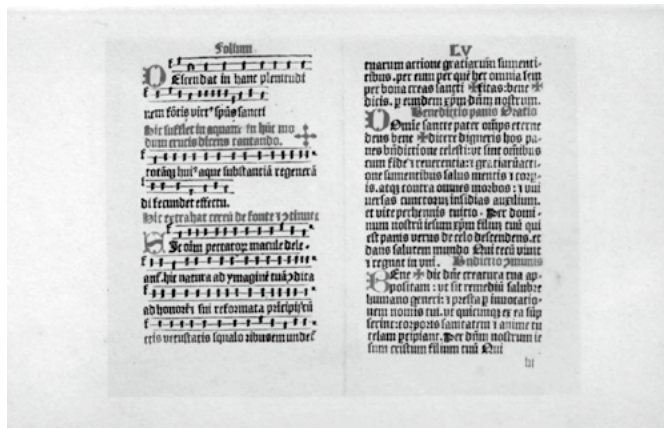 Folium.
Descendat in hanc plenitudi
nem fontis virtꝰ spūs sancti
Hic sufflet in aquam in hūc mo
dum crucis dicens cantando.
totāqꝫ huiꝰ aque substantiā regenerā
di fecundet effectu.
Hic extrahat cereū de fonte
Sic oīm peccatoꝝ macule dele.
ant. hic natura ad ymaginē tuā cōdita
ad honorē sui reformata prīcipij cū
ctis vetustatis squaloribus emundeť
LV
tuarum actione gratiarum sumenti
tibus. per eum per quē hec omnia sem
per bona creas sancti ✠ficas: bene ✠
dicis. p eundem xp̄m dn̄m nostrum.
Benedictio panis Oratio
Domīe sancte pater om̄ps eterne
deus bene ✠ dicere digneris hos pa
nes bn̄dictione celesti: vt sint om̄ibus
cum fide ⁊ reuerentia: ⁊ gratiarū acti
one sumentibus salus mentis ⁊ corp
is. atqꝫ contra omnes morbos: ⁊ vni
uersas cunctoꝝ insidias auxilium.
et vite perhennis tutio. Per domi
num nostrū iesum xp̄m filiū tuū qui
est panis verus de celo descendens. et
dans salutem mundo Qui tecū viuit
⁊ regnat in vni. Bn̄dictio cōmunis
Bene ✠ dic dn̄e creaturā tuā ap
positam: vt sit remediū salubre
humano generi: ⁊ presta p inuocatio
nem nomis tui. vt quicunqꝫ ex ea sūp
serint: corporis sanitatem ⁊ anime tu
telam pcipiant. Per dn̄m nostrum ie
sum cristum filium tuū Qui